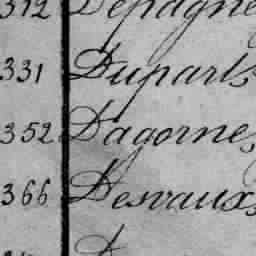 312 Depagne
331 Duparts,
352 Dagorne,
366 Desvaux,